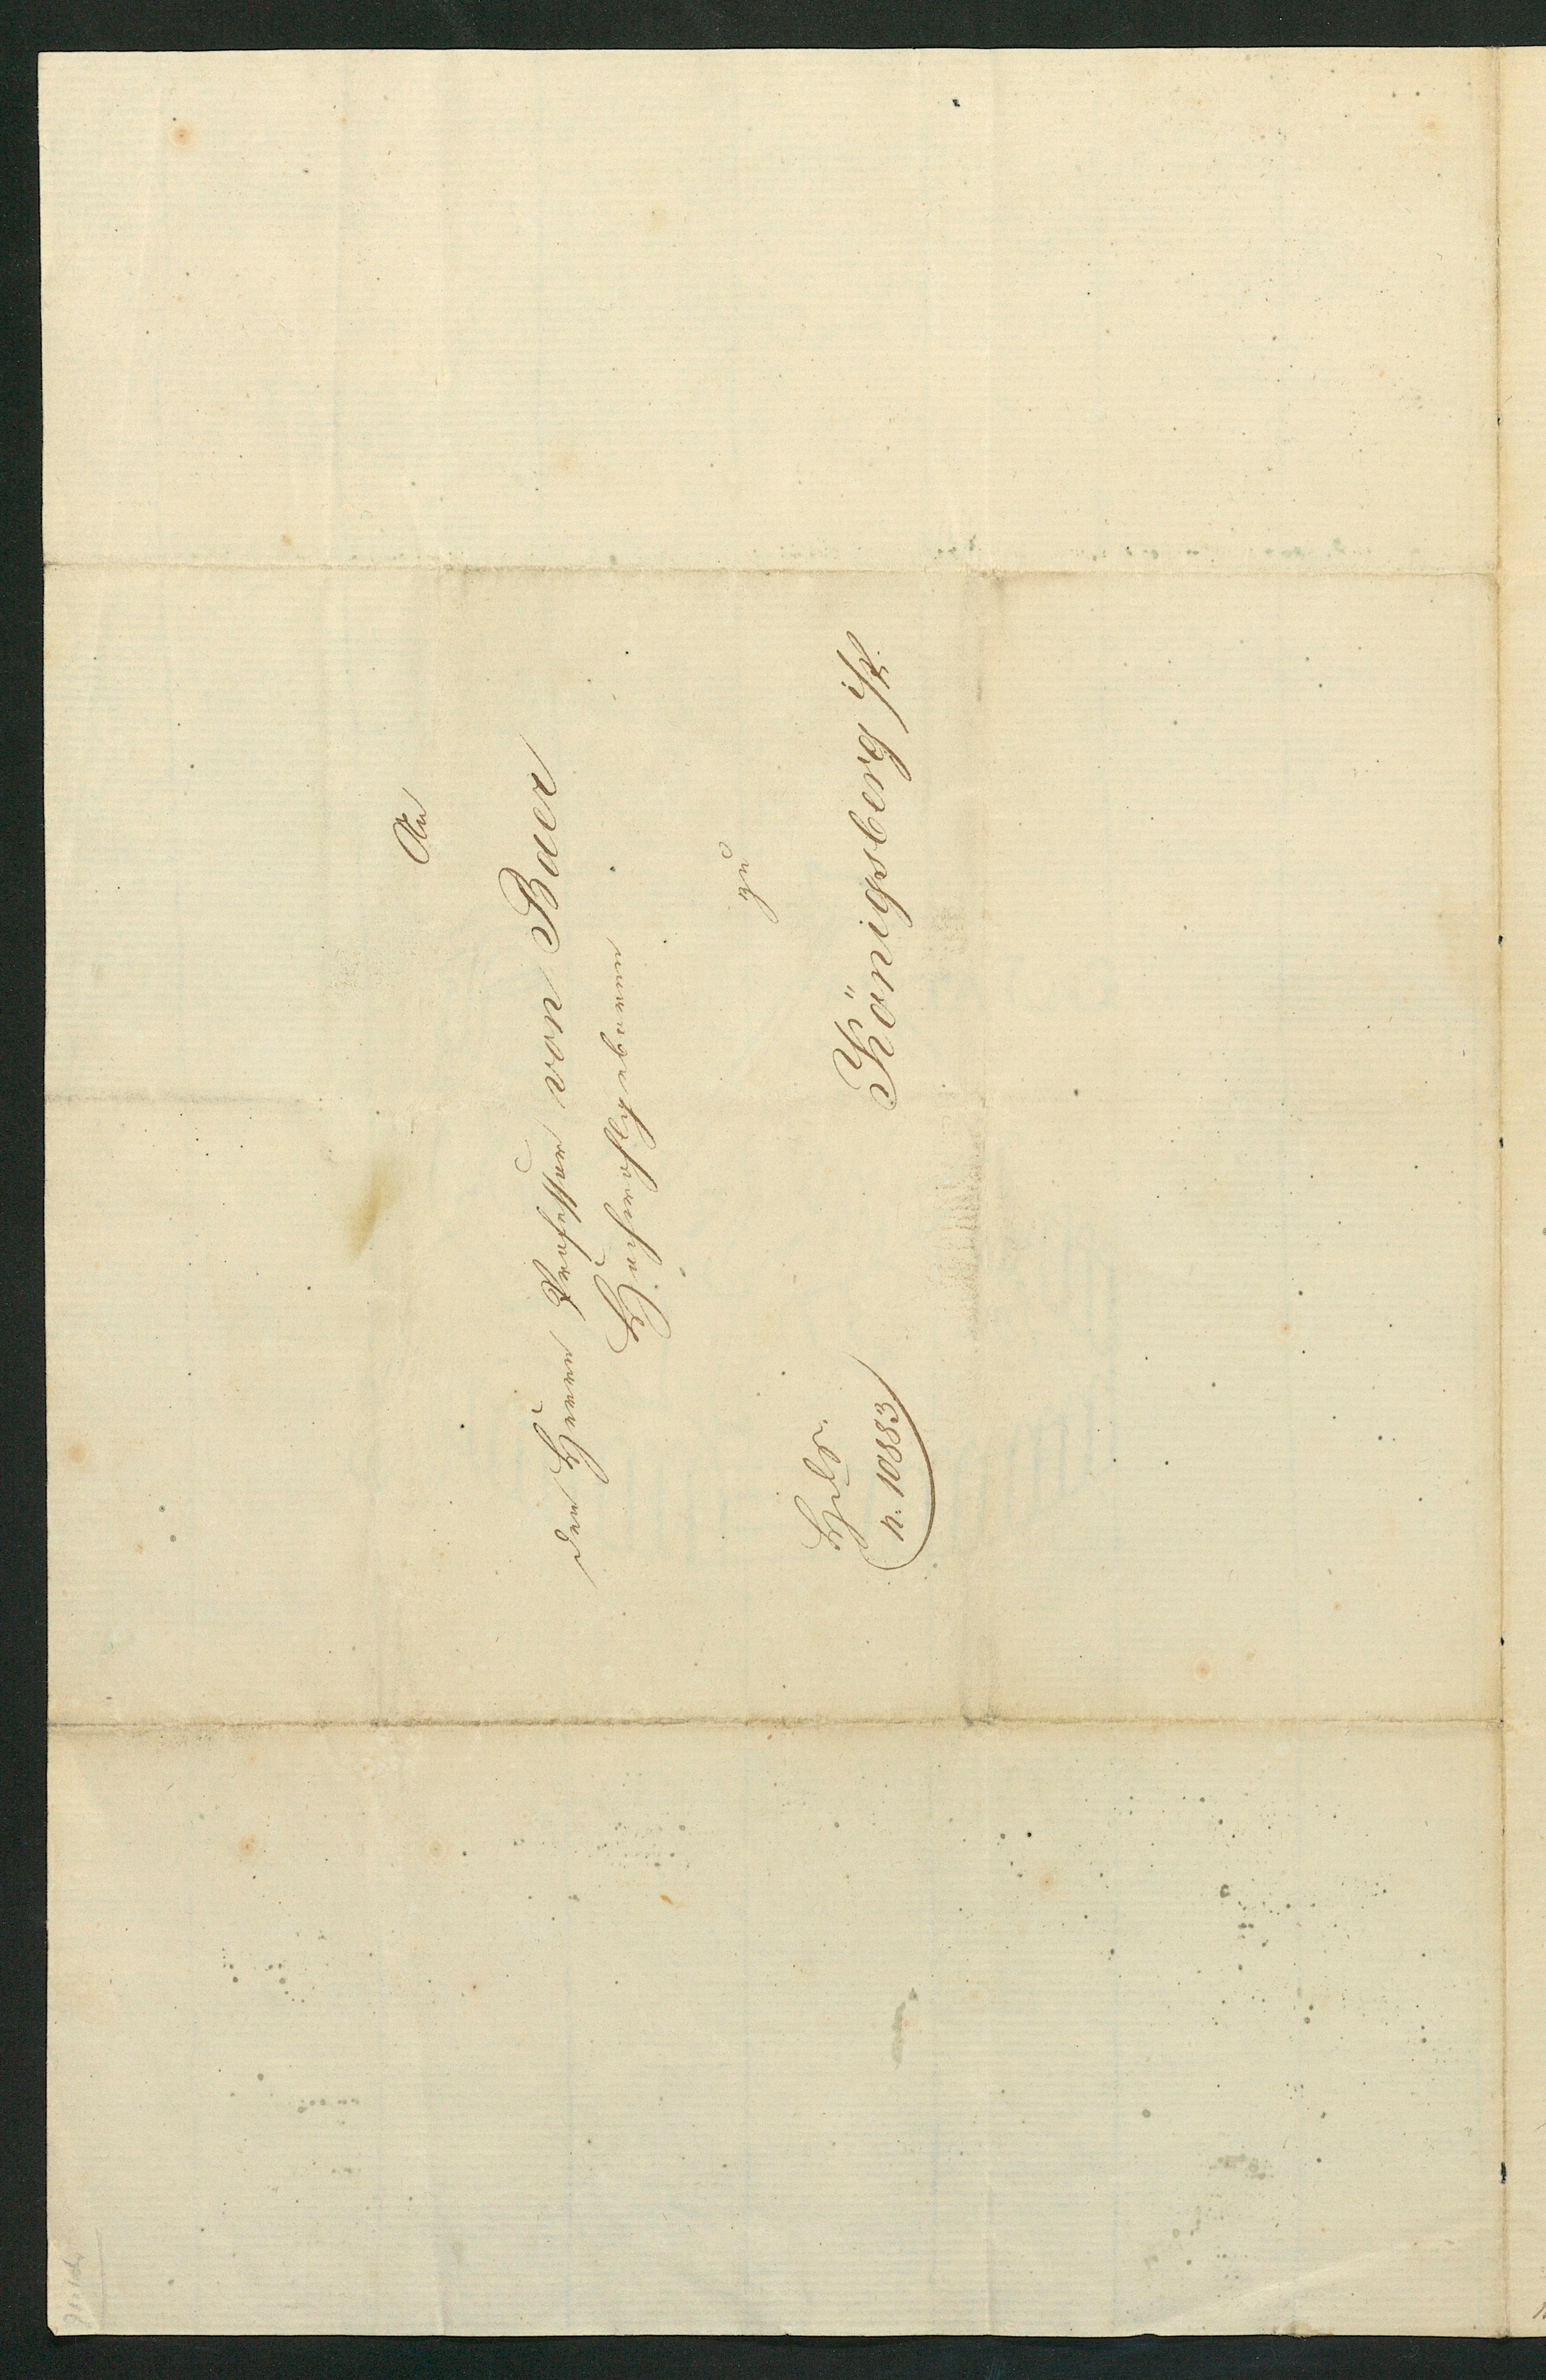 An
den Herrn Professor von Baer
Hochwohlgeboren
zu
Königsberg i/Pr.
n. 10883